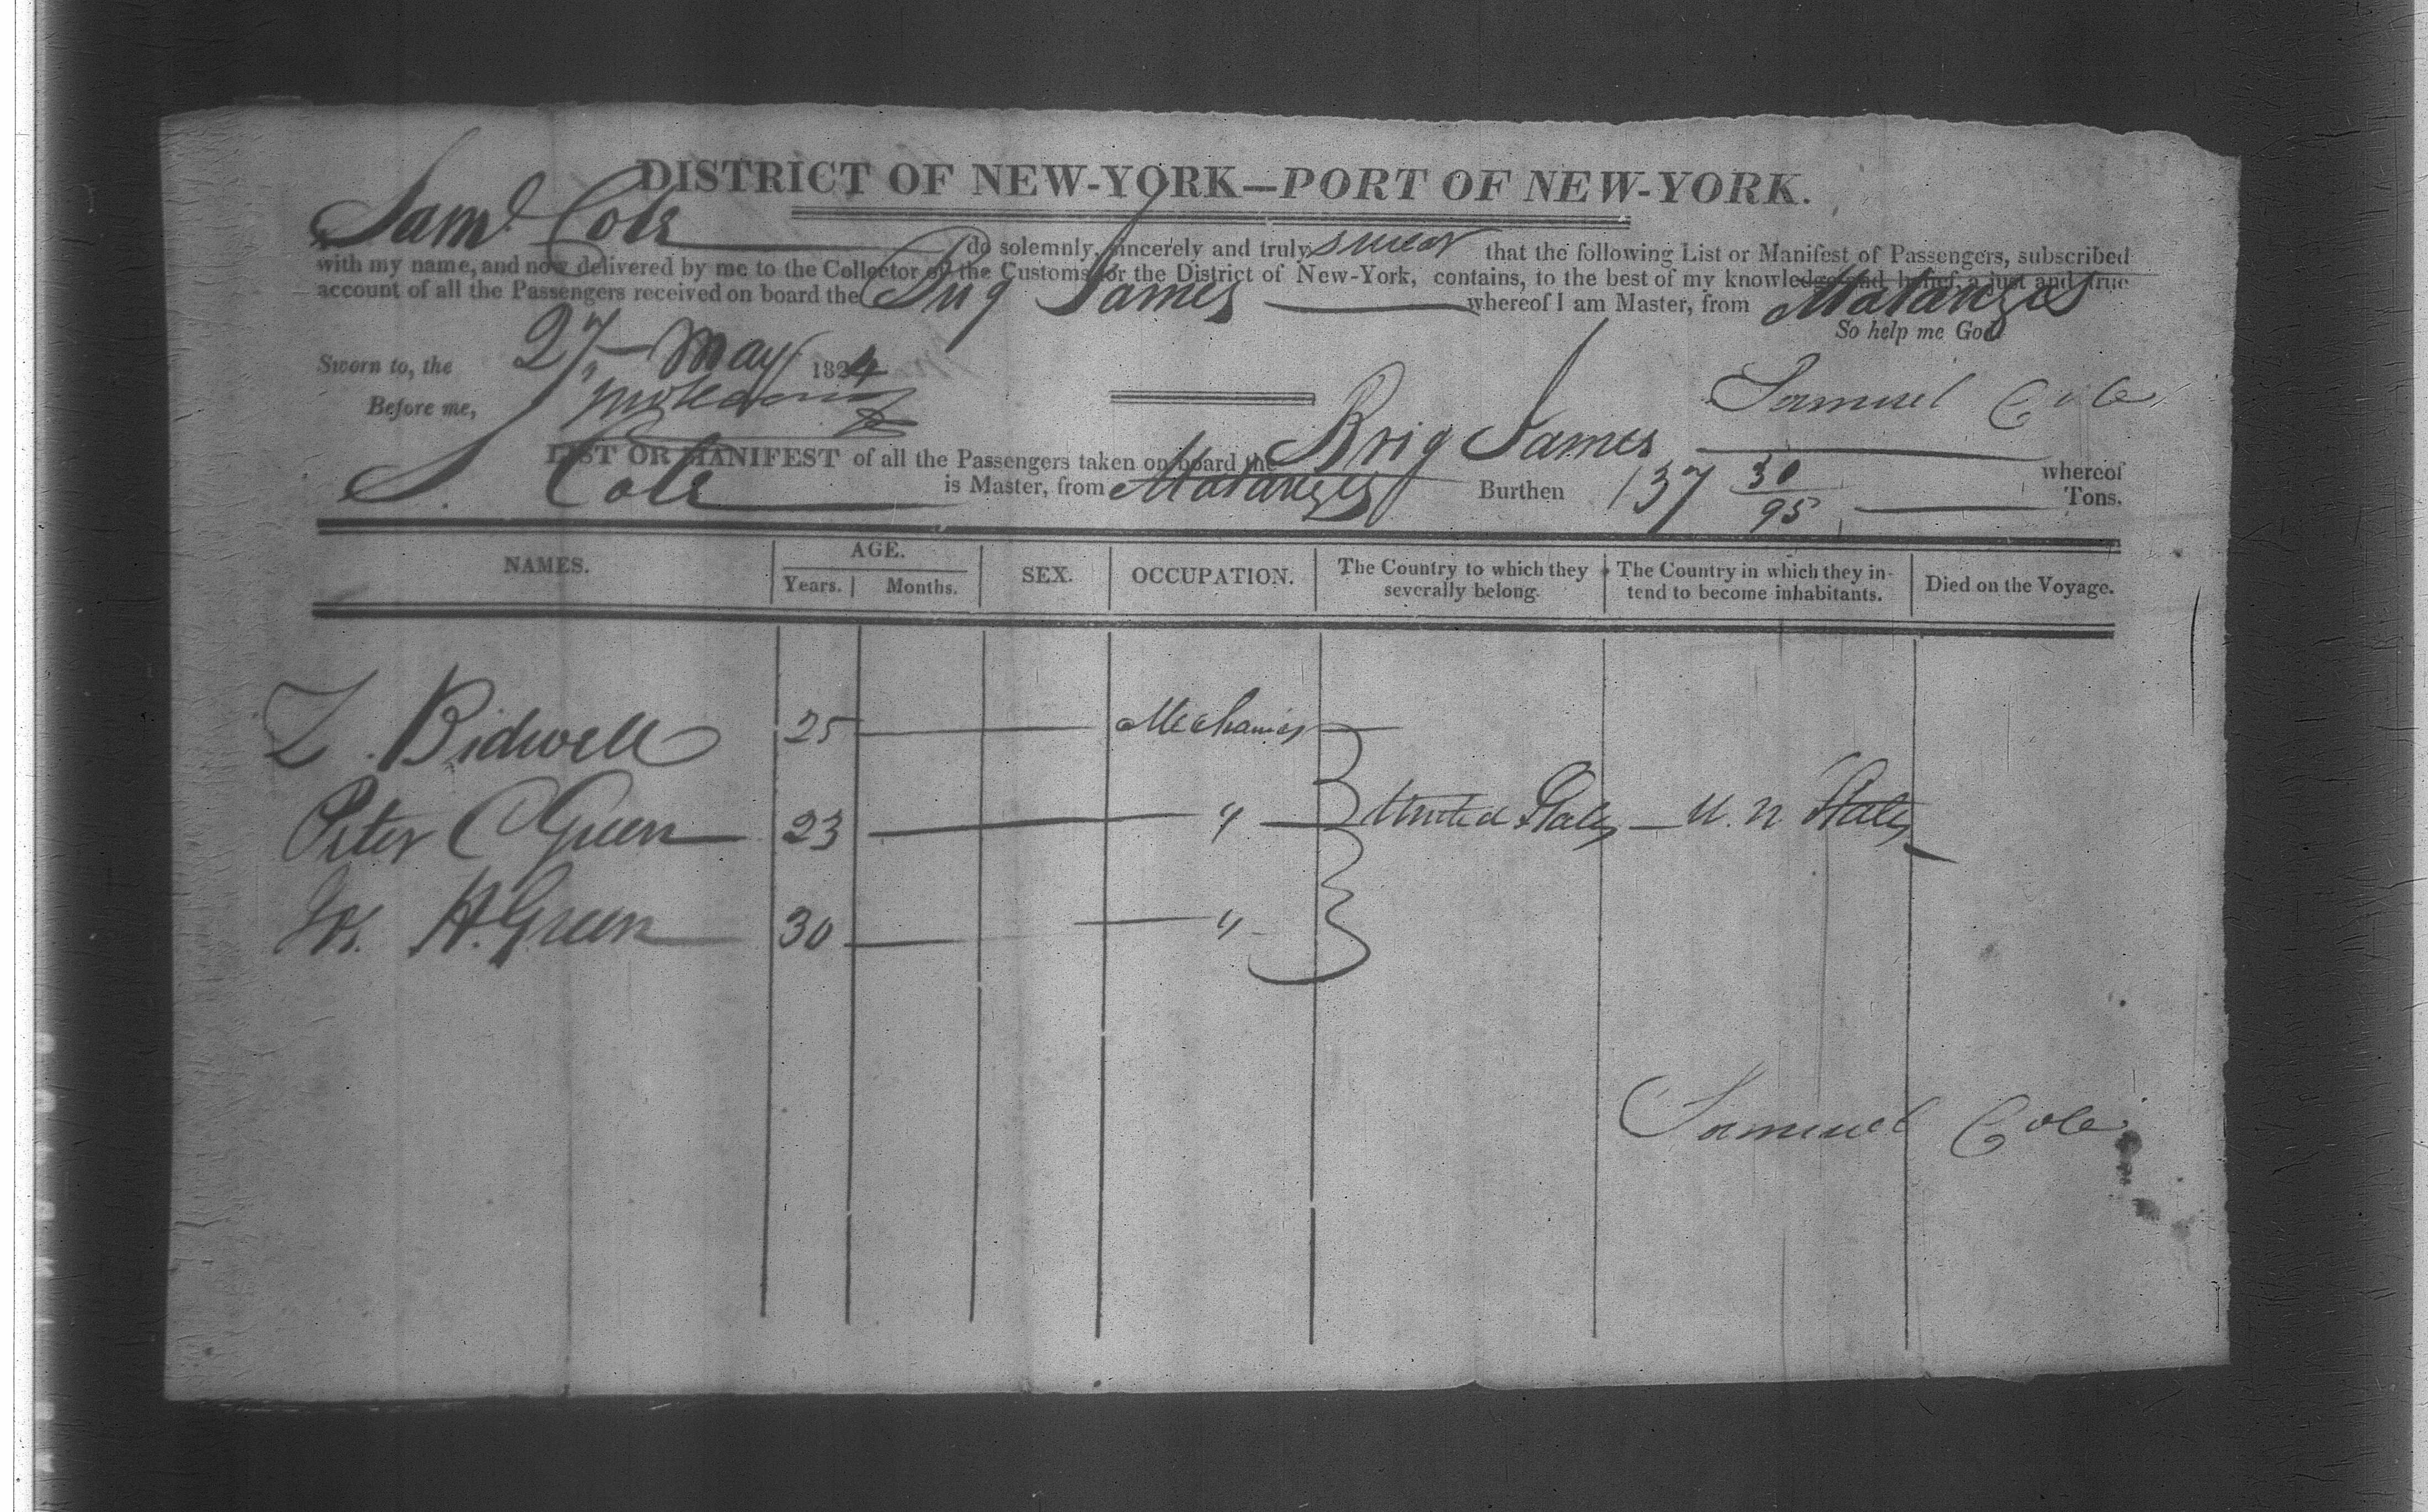 DISTRICT OF NEW-YORK—PORT OF NEW-YORK.
Saml Cole do solemnly, sincerely and truly swear that the following List or Manifest of Passengers, subscribed
with my name, and now delivered by me to the Collector of the Customs for the District of New-York, contains, to the best of my knowledge and belief, a just and true
account of all the Passengers received on board the Brig James whereof I am Master, from Matanzas
So help me God
Sworn to, the 27 May 1824
Before me,
Samuel Cole
LIST OR MANIFEST of all the Passengers taken on board the Brig James whereof
S. Cole is Master, from Matanzas Burthen 137 30/95 Tons.
NAMES. AGE. Years. Months. SEX. OCCUPATION. The Country to which they severally belong. The Country in which they intend to become inhabitants. Died on the Voyage.
Z. Bidwell 25 Mechanics
Peter C Green 23 " United States — U. n States
H. Green 30 "
Samuel Cole